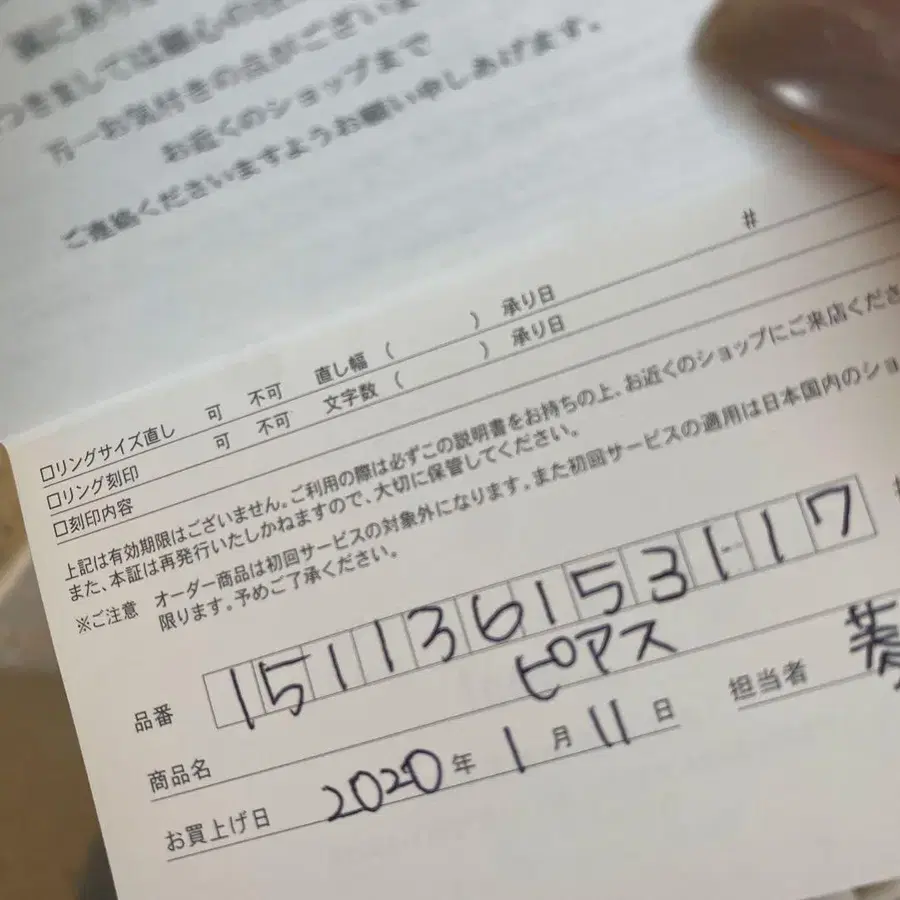 つきましては細心の
万一お気付きの点がございま
お近くのショップまで
ご連絡くださいますようお願い申しあげます。
#
□リングサイズ直し 可 不可 直し幅 ( ) 承り日
□リング刻印 可 不可 文字数 ( ) 承り日
□刻印内容
上記は有効期限はございません。ご利用の際は必ずこの説明書をお持ちの上、お近くのショップにご来店くださ
また、本証は再発行いたしかねますので、大切に保管してください。
※ご注意 オーダー商品は初回サービスの対象外になります。また初回サービスの適用は日本国内のショ
限ります。予めご了承ください。
品番 1511361531117
商品名 ピアス
担当者
お買上げ日 2020年1月11日